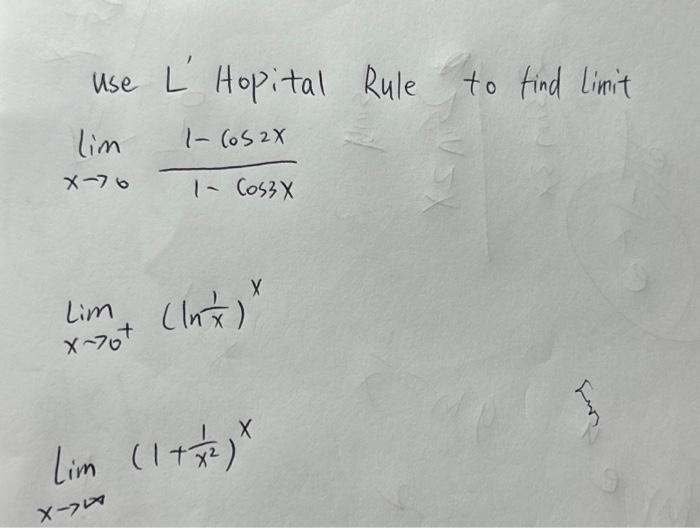 use L' Hopital Rule to find limit
lim x→0 (1 - cos2x) / (1 - cos3x)
Lim x→0⁺ (ln 1/x)^x
Lim x→∞ (1 + 1/x²)^x